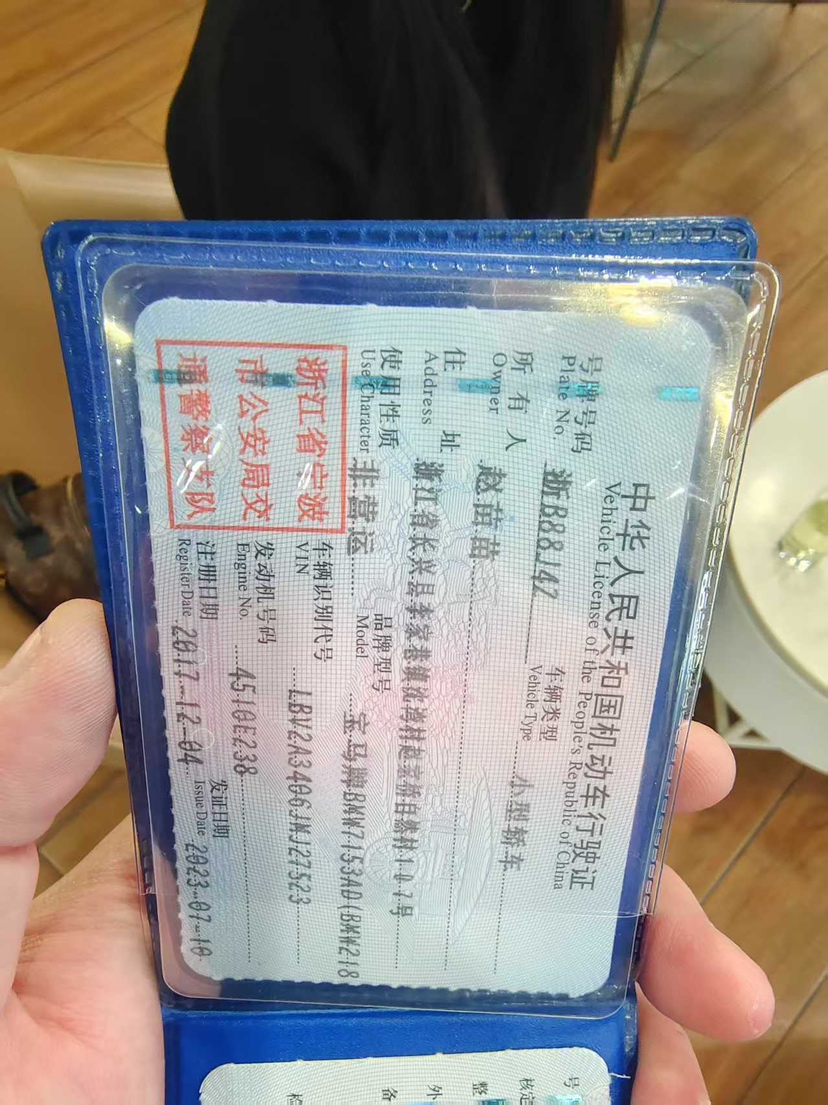 中华人民共和国机动车行驶证
Vehicle License of the People's Republic of China
号牌号码 浙B88J4Z 车辆类型 小型轿车
Plate No. Vehicle Type
所有人 赵苗苗
Owner
住址 浙江省长兴县李家巷镇沈湾村赵家桥自然村107号
Address
使用性质 非营运 品牌型号 宝马牌BMW7153AD(BMW218
Use Character Model
浙江省宁波
市公安局交
通警察支队
车辆识别代号 LBV2A3406JMJ27523
VIN
发动机号码 4510E238
Engine No.
注册日期 2017-12-04 发证日期 2023-07-10
Register Date Issue Date
号
核定
整
外
备
检